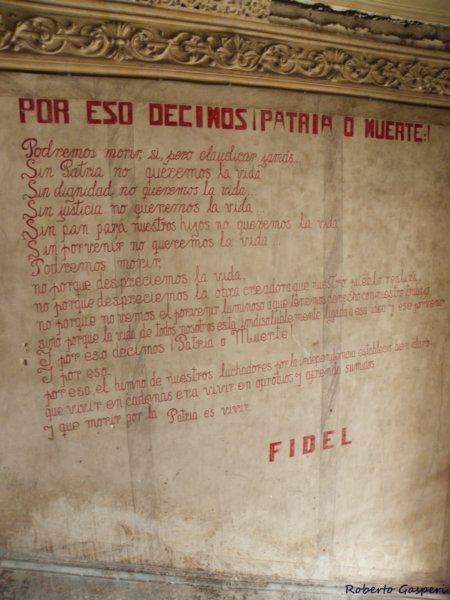 POR ESO DECIMOS ¡PATRIA O MUERTE!
Podremos morir, si, pero claudicar jamás...
Sin Patria no queremos la vida
Sin dignidad no queremos la vida...
Sin justicia no queremos la vida...
Sin pan pará nuestros hijos no queremos la vida
Sin porvenir no queremos la vida...
Podremos morir,
no porque despreciemos la vida,
no porque despreciemos la obra creadora que nuestro pueblo realiza,
no porque no vemos el porvenir luminoso a que tenemos derecho con nuestro trabajo
sino porque la vida de todos nosotros está indisolublemente ligada a esa idea y ese porvenir
Y por eso decimos ¡Patria o Muerte!
Y por eso,
por eso el himno de nuestros luchadores por la independencia establecía bien claro:
que vivir en cadenas era vivir en oprobios y afrenta sumidos
y que morir por la Patria es vivir.
FIDEL
Roberto Gasperi